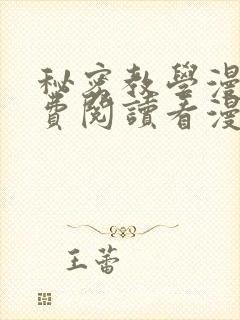 秘密教學漫
費閱讀看漫
王蕾